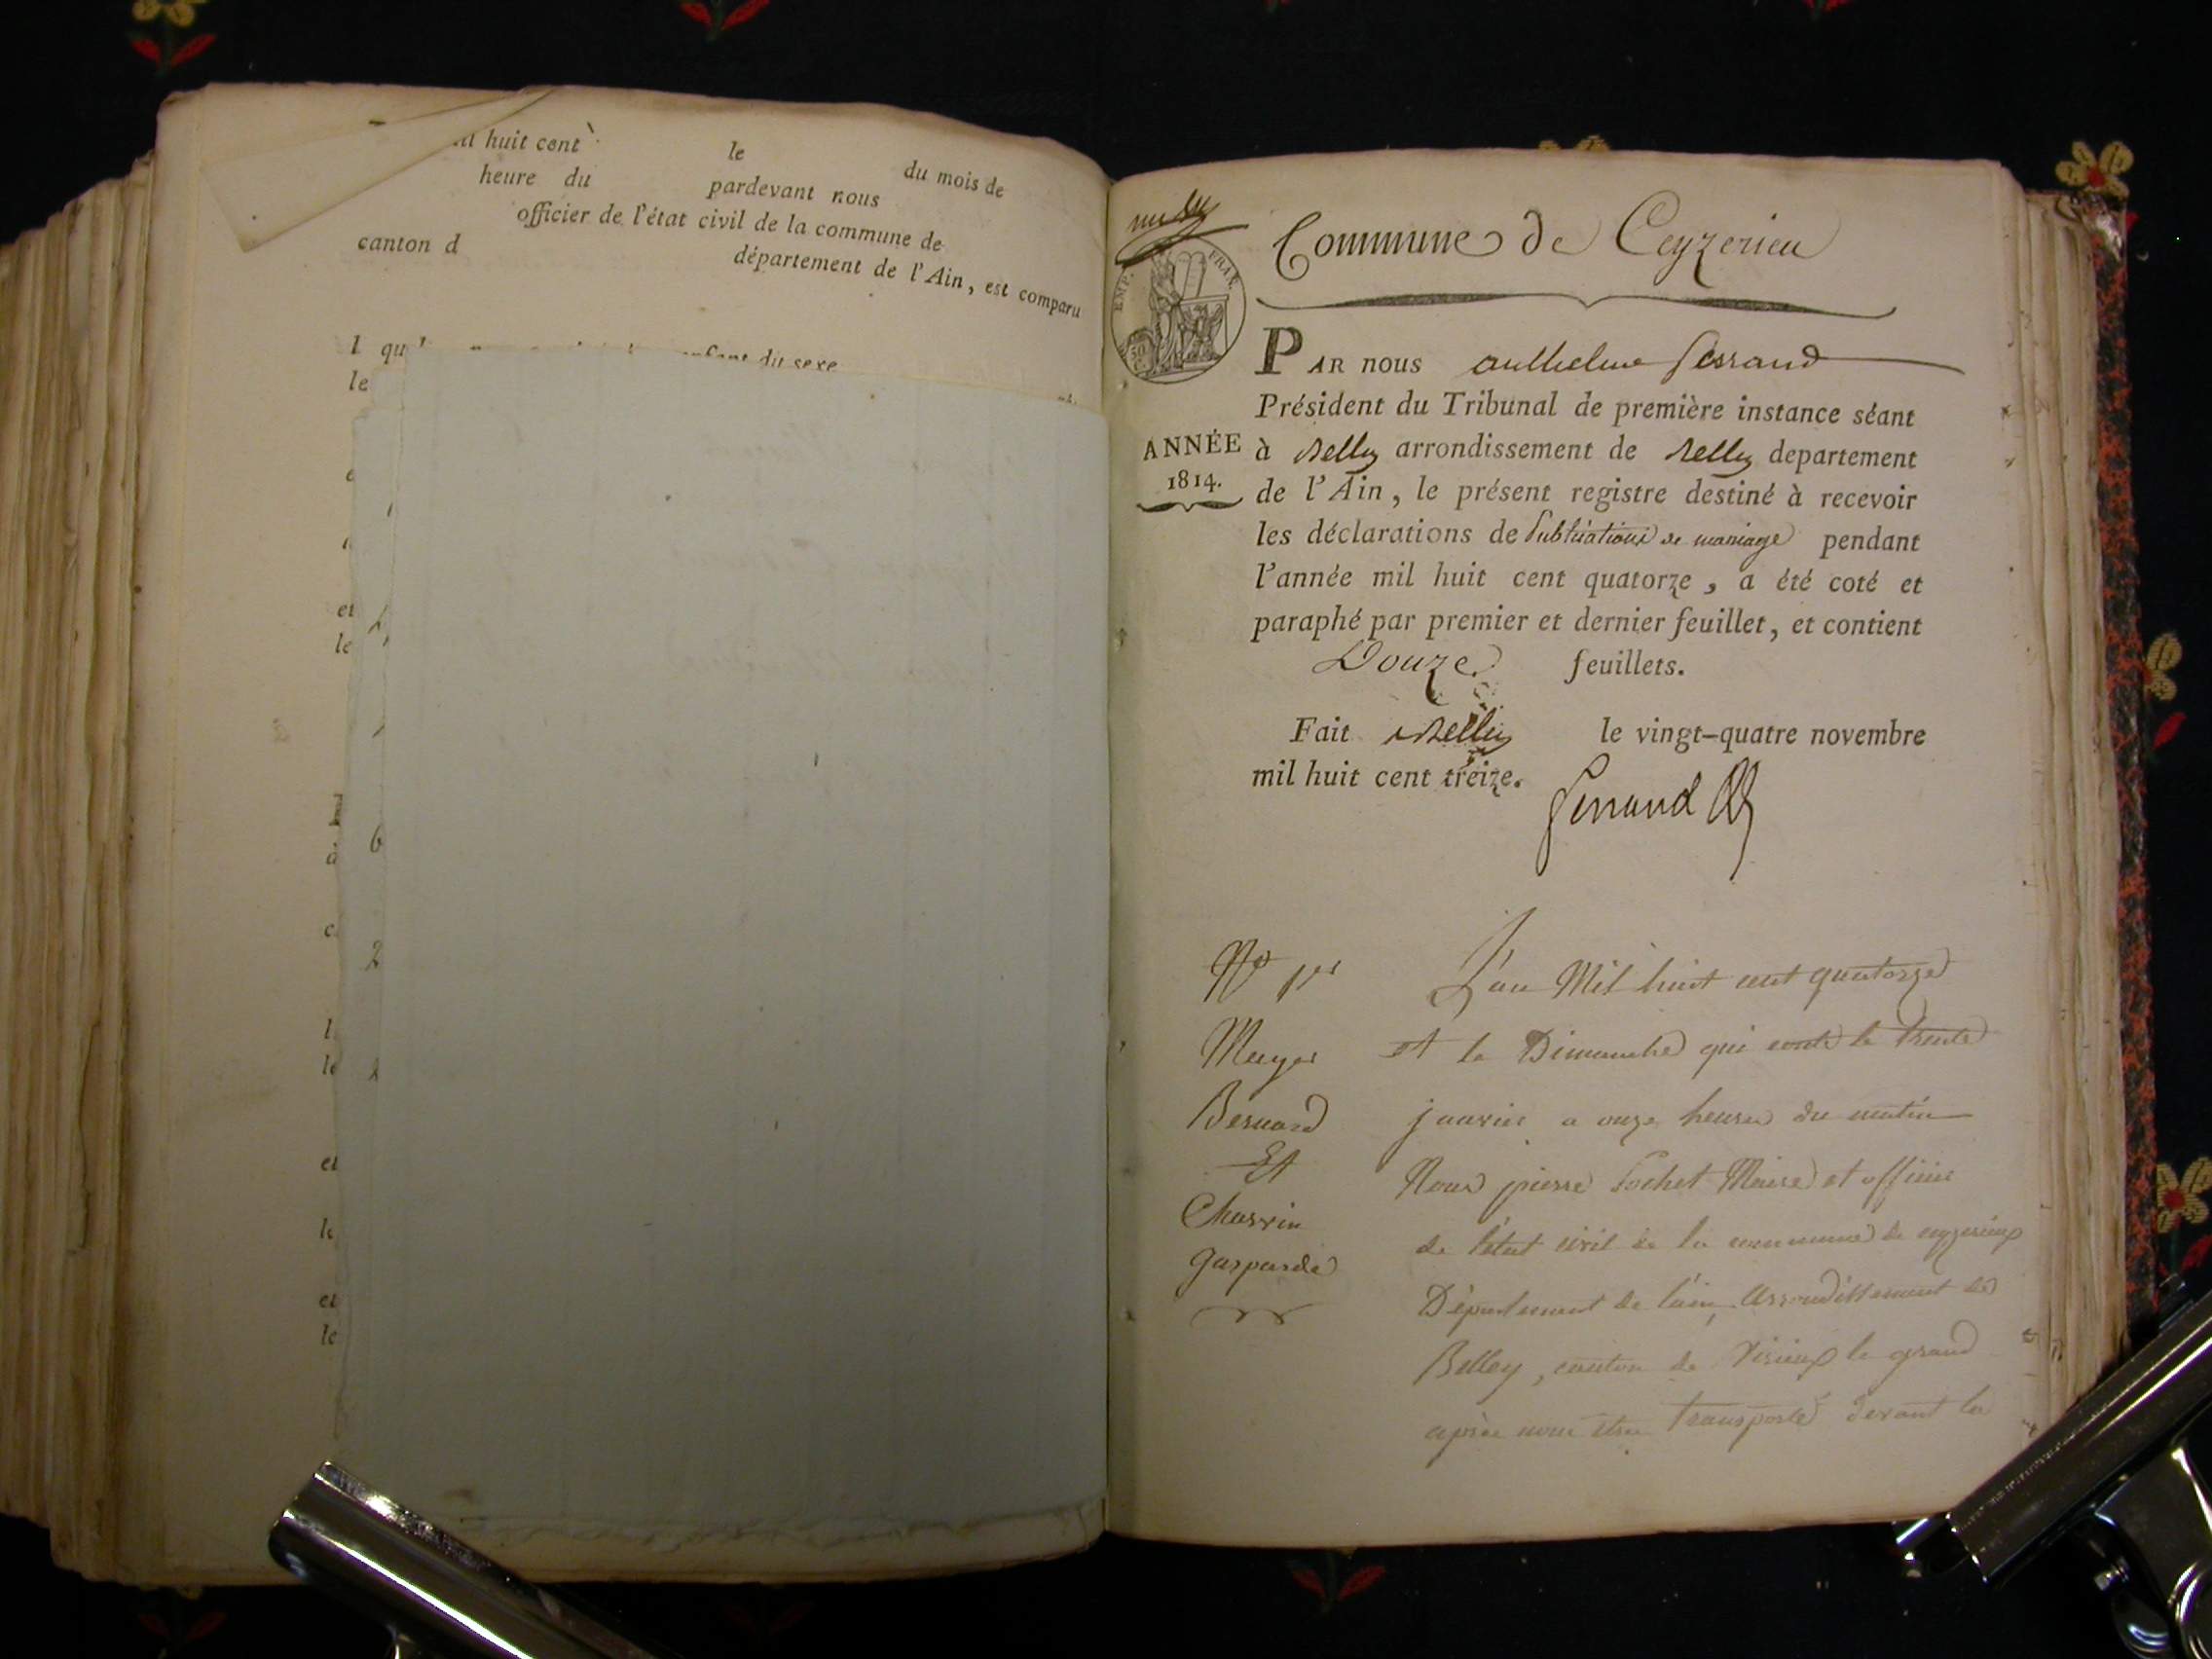 huit cent le du mois de
heure du pardevant nous
officier de l'état civil de la commune de
canton d département de l'Ain, est comparu
enfant du sexe
le
et
le
6
2
et
et
Commune de Ceyzerieu
EMP. FRAN.
50
PAR nous anthelme ferrand
Président du Tribunal de première instance séant
ANNÉE
1814.
à Belley arrondissement de Belley departement
de l'Ain, le présent registre destiné à recevoir
les déclarations de Publications de mariage pendant
l'année mil huit cent quatorze, a été coté et
paraphé par premier et dernier feuillet, et contient
Douze feuillets.
Fait a Belley le vingt-quatre novembre
mil huit cent treize.
ferrand
No 1er
Meyer
Bernard
Et
Charvin
gasparde
L'an Mil huit cent quatorze
et le Dimanche qui conte le trente
janvier a onze heures du matin
Nous pierre Pochet Maire et officier
de l'état civil de la commune de ceyzerieux
Département de l'ain, Arrondissement de
Belley, canton de Virieux le grand
après nous etre transporté devant la